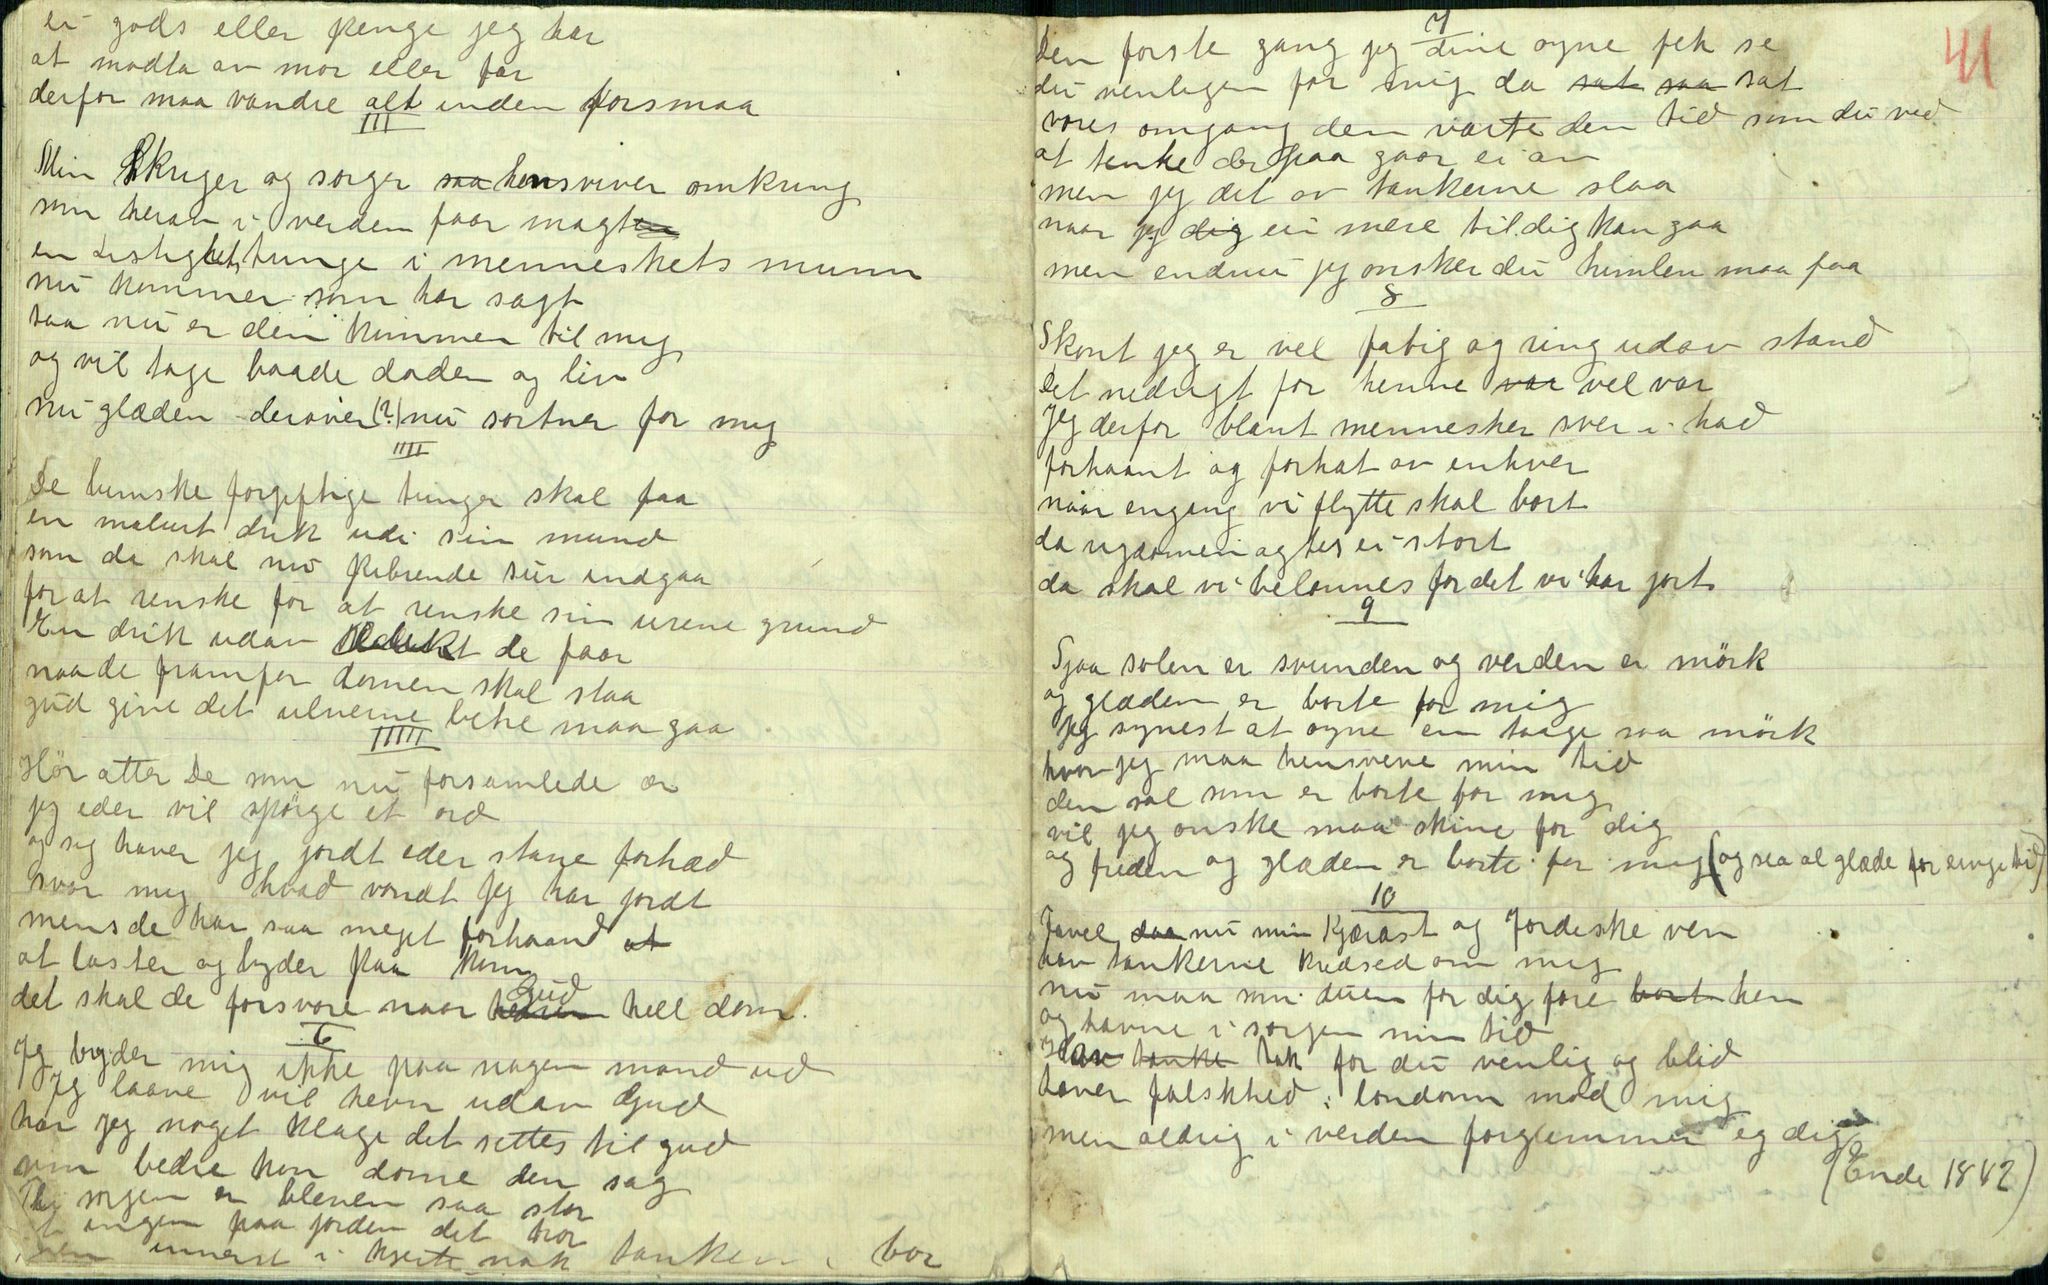 ei gods eller penge jeg har
at modta av mor eller far
derfor maa vandre alt inden forsmaa
III
Min Skriger og sorger saa hensviver omkring
som heran i verden faar magten
en Listighet, tunge i menneskets munn
nu kommer som har sagt
saa nu er den kommen til mig
og vil tage baade døden og liv
nu glæden derover (?) nu sortner for mig
IIII
De lumske forgiftige tunger skal faa
en malurt drik udi sin mund
som da skal nu sur indgaa
for at renske for at renske sin urene grund
En drik udav de faar
naar de framfor domen skal staa
gud give det ulverne betre maa gaa
IIIII
Hör atter De som nu forsamlede er
jeg eder vil spörge et ord
og sig haver jeg jordt eder stane forhæd
svar mig hvad vondt jeg har jordt
mens de har saa meget forhaand at
at laster og lyder paa kom
det skal de forsvare naar Gud hell dom.
6
Jeg byder mig ikke paa nogen mand ud
Jeg laane vil hevn udav Gud
har jeg noget klage det settes til gud
som bedre kan dome den sag
Thi sorgen er bleven saa stor
at ingen paa jorden det tror
men innerst i hjerte nok tanken i bor
41
7
Den forste gang jeg dine oyne fek se
du venligen for mig da sat saa sat
vores omgang den varte den tid som du ved
at tenke der paa gaar ei an
men jeg det av tankerne slaa
naar jeg dig ei mere til dig kan gaa
men endnu jeg onsker du himlen maa faa
8
Skont jeg er vel fatig og ring udav stand
Det nedrigt for henne var vel var
Jeg derfor blant mennesker sver i had
forhaant og forhat av enhver
naar engang vi flytte skal bort
da rigdomen agtes ei stort
da skal vi belonnes for det vi har jort
9
Sjaa solen er svunden og verden er mörk
og glæden er borte for mig
Jeg synest at oyne en taage saa mörk
hvor jeg maa hensveve min tid
den sol som er borte for mig
vil jeg onske maa skine for dig
og freden og glæden er borte for mig (og saa al glæde for evige tid)
10
Farvel daa nu min Kjærast og Jordiske ven
hav tankerne kredsed om mig
nu maa som duen for dig fare bort hen
og havne i sorgen min tid
Hav tanke tak for du venlig og blid
haver falskhed i londom mod mig
men aldrig i verden forglemmer eg dig
(Ende 1882)